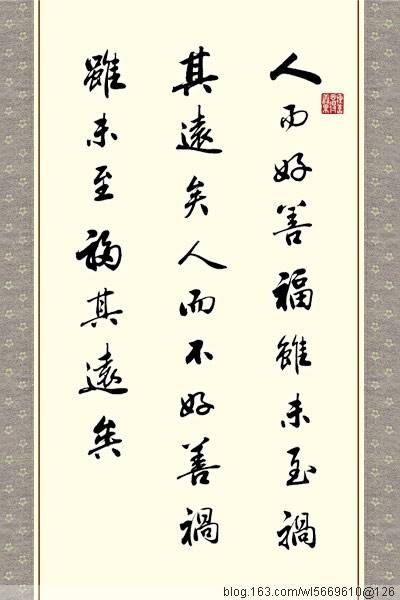 人而好善福雖未至禍
其遠矣人而不好善禍
雖未至福其遠矣
blog.163.com/wl5669610@126